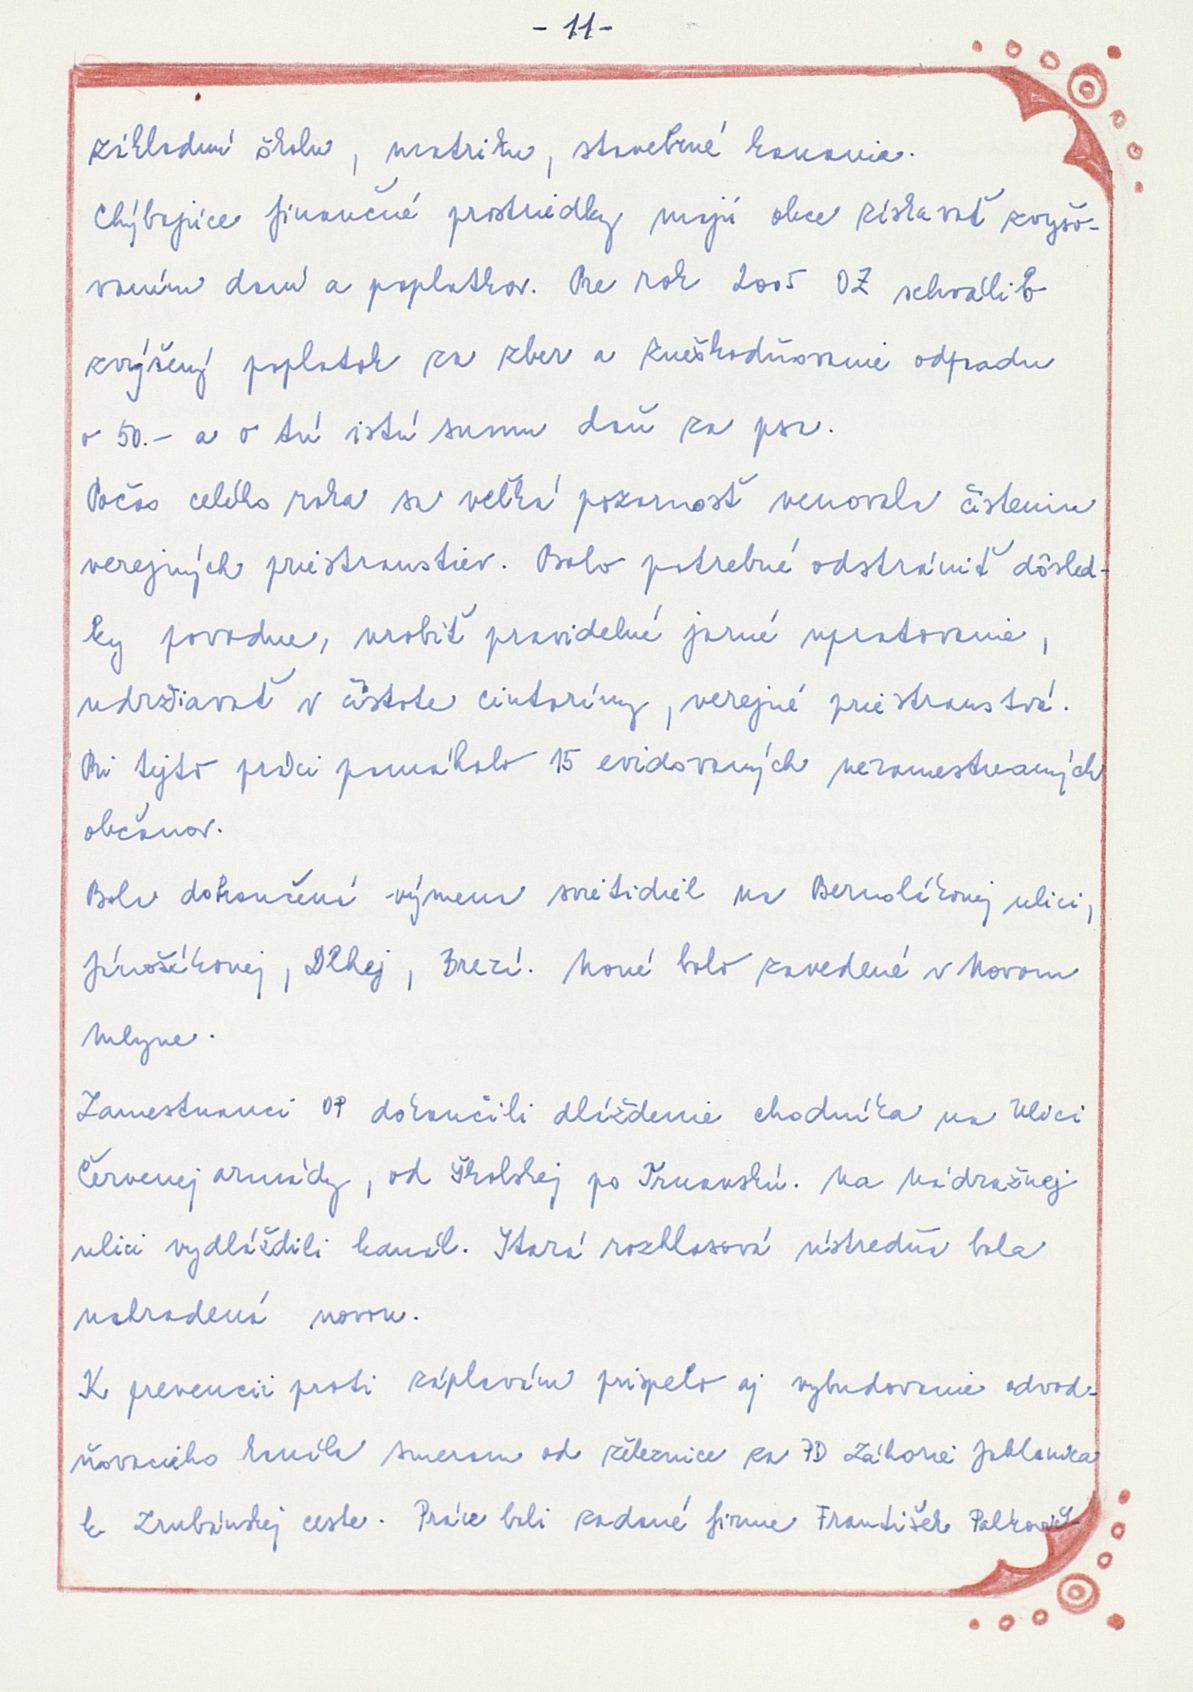 - 11 -
základnú školu, matriku, stavebné konanie.
Chýbajúce finančné prostriedky majú obce získavať zvyšo-
vaním daní a poplatkov. Pre rok 2005 OZ schválilo
zvýšený poplatok za zber a zneškodňovanie odpadu
o 50.- a o tú istú sumu daň za psa.
Počas celého roka sa veľká pozornosť venovala čisteniu
verejných priestranstiev. Bolo potrebné odstrániť dôsled-
ky povodne, urobiť pravidelné jarné upratovanie,
udržiavať v čistote cintoríny, verejné priestranstvá.
Pri tejto práci pomáhalo 15 evidovaných nezamestnaných
občanov.
Bola dokončená výmena svietidiel na Bernolákovej ulici,
Jánošíkovej, Dlhej, Brezí. Nové bolo zavedené v Novom
Mlyne.
Zamestnanci OP dokončili dláždenie chodníka na Ulici
Červenej armády, od Školskej po Trnavskú. Na Nádražnej
ulici vydláždili kanál. Stará rozhlasová ústredňa bola
nahradená novou.
K prevencii proti záplavám prispelo aj vybudovanie odvod-
ňovacieho kanála smerom od železnice za PD Záhorie Jablonica
k Zrubánskej ceste. Práce boli zadané firme František Palkovič-